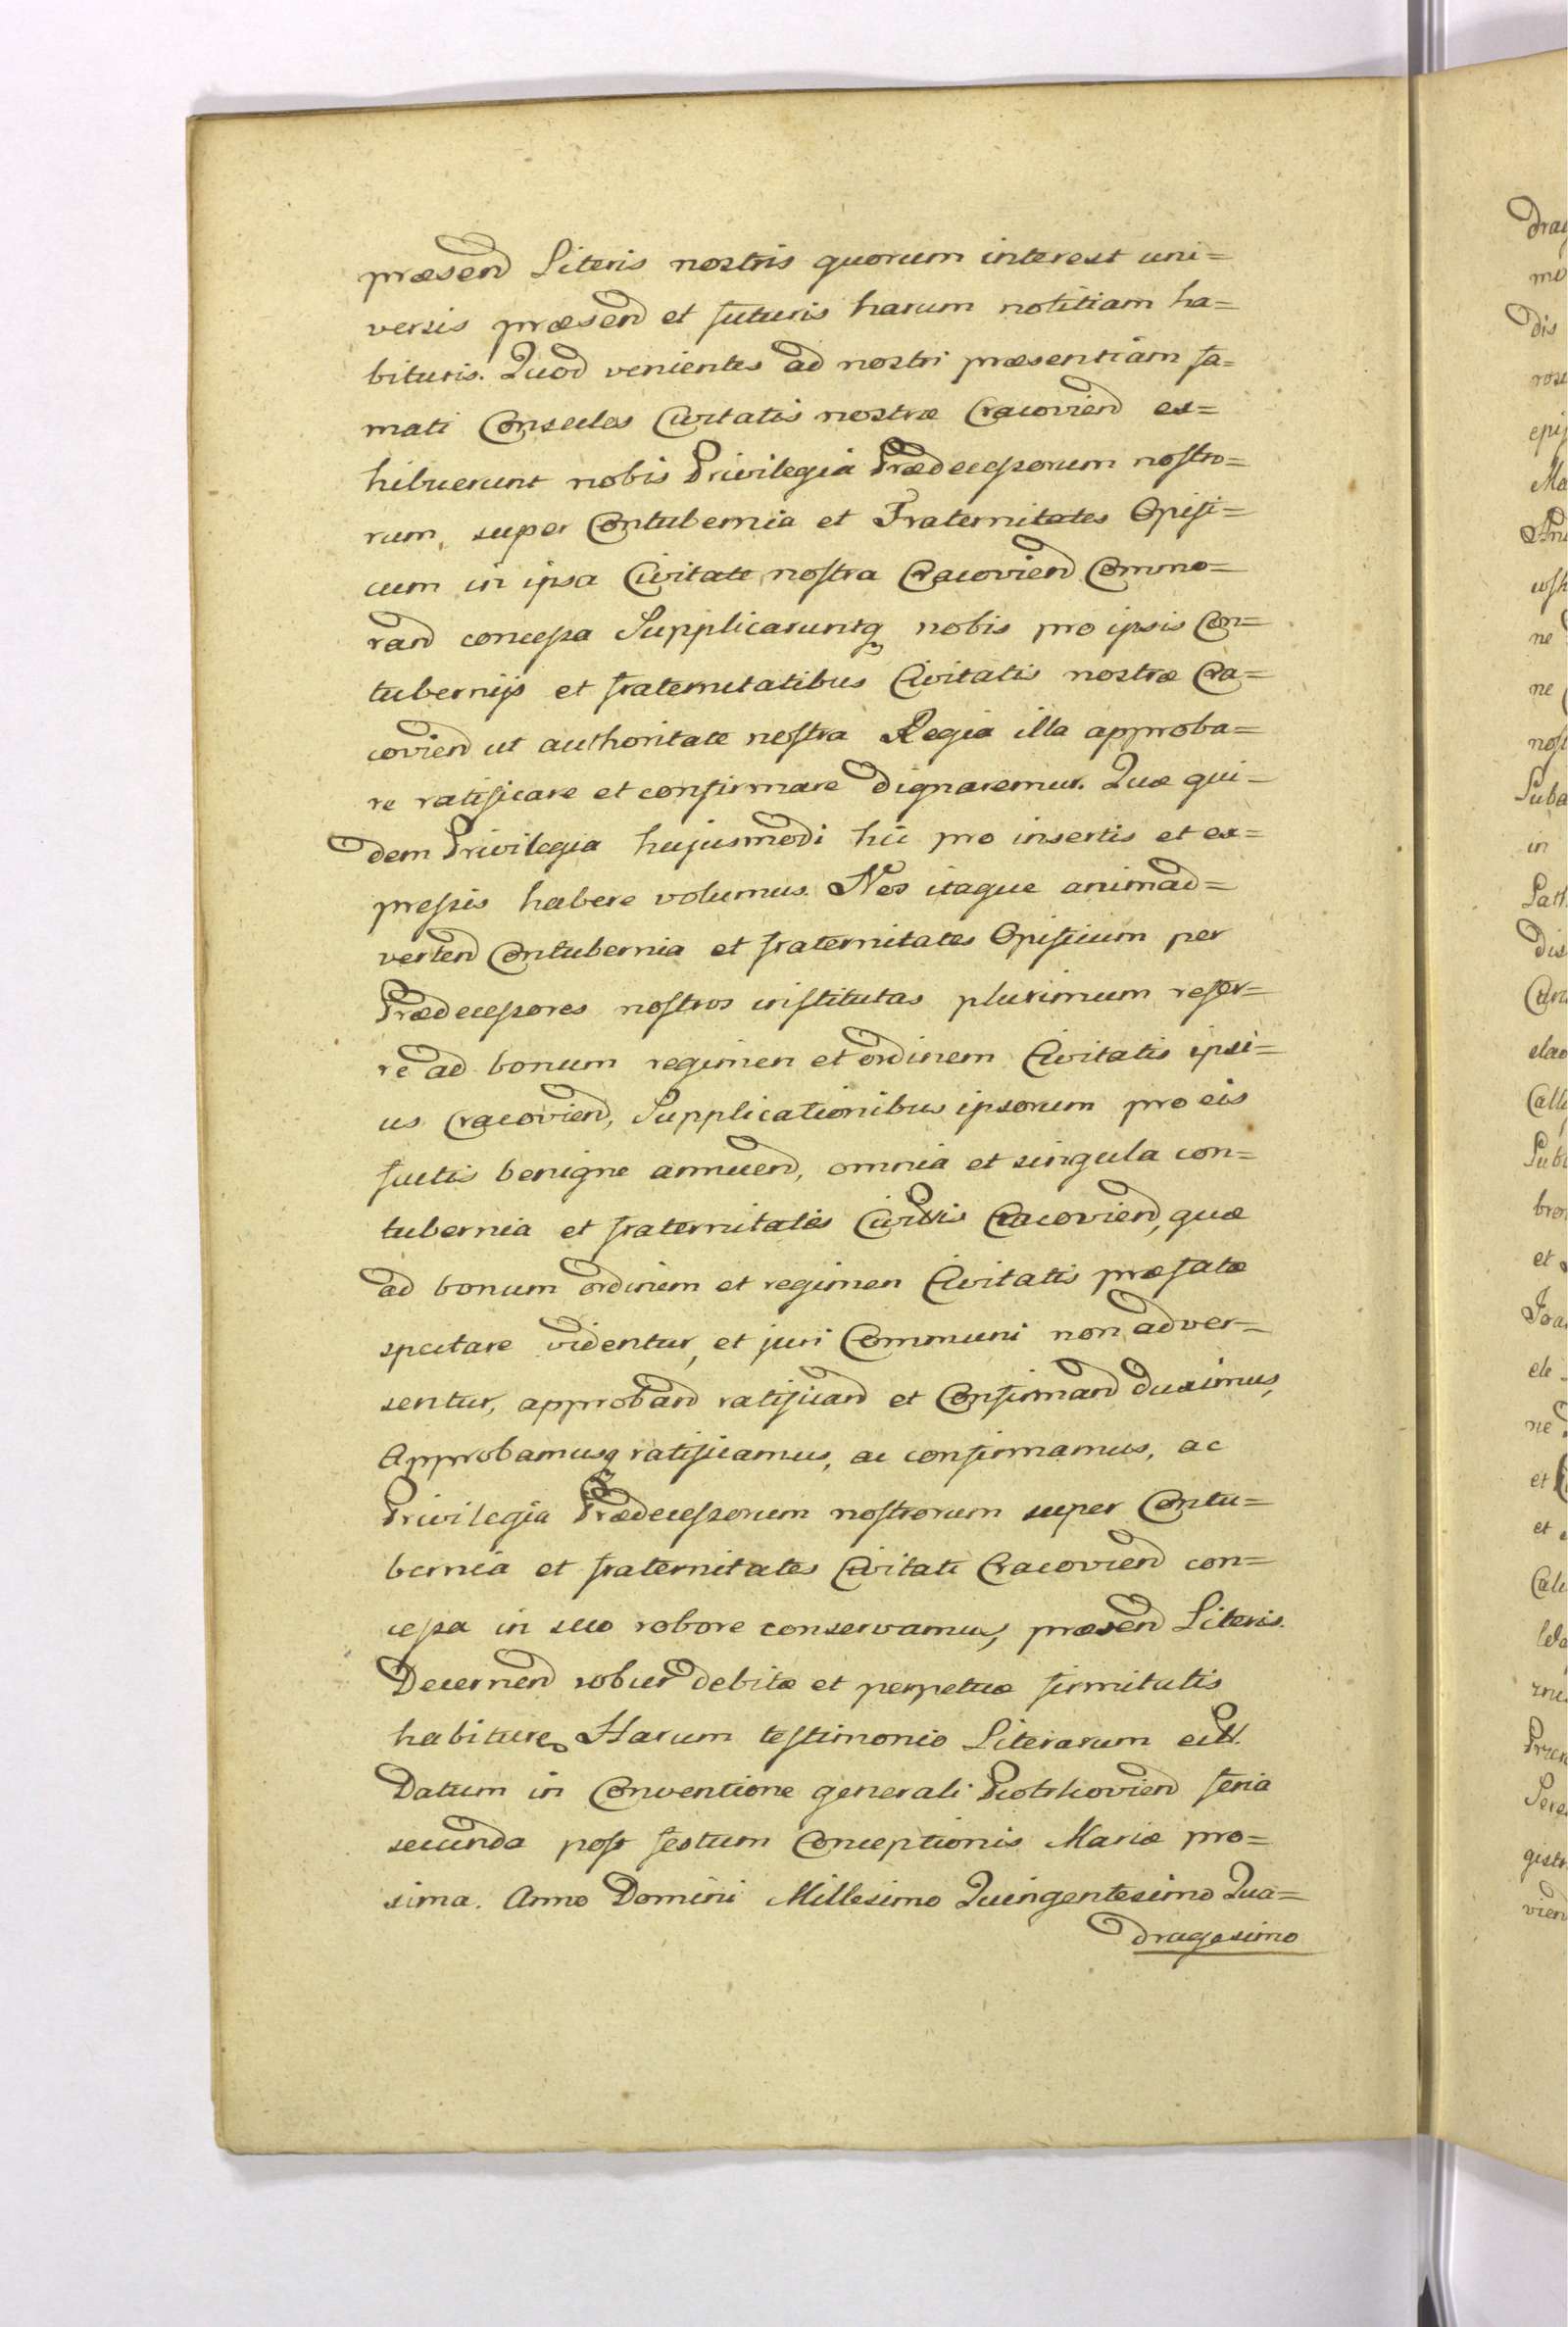 præsend Literis nostris quorum interest uni=
versis præsend et futuris harum notitiam ha=
bituris. Quod venientes ad nostri præsentiam fa=
mati Consules Civitatis nostræ Cracoviend ex=
hibuerunt nobis Privilegia Prædecessorum nostro=
rum, super Contubernia et Fraternitates Opifi=
cum in ipsa Civitate nostra Cracoviend Commo=
rand concessa Supplicaruntq nobis pro ipsis Con=
tubernijs et fraternitatibus Civitatis nostræ Cra=
coviend ut authoritate nostra Regia illa approba=
re ratificare et confirmare dignaremur. Quæ qui=
dem Privilegia hujusmodi hic pro insertis et ex=
pressis habere volumus. Nos itaque animad=
vertend Contubernia et fraternitates Opificum per
Prædecessores nostros institutas plurimum refer=
re ad bonum regimen et ordinem Civitatis ipsi=
us Cracoviend, Supplicationibus ipsorum pro eis
factis benigne annuend, omnia et singula con=
tubernia et fraternitates Civittis Cracoviend, quæ
ad bonum ordinem et regimen Civitatis præfatæ
spectare videntur, et juri Communi non adver=
sentur, approband ratificand et Confirmand duximus,
Approbamusq ratificamus, ac confirmamus, ac
Privilegia Prædecessorum nostrorum super Contu=
bernia et fraternitates Civitati Cracoviend con=
cessa in suo robore conservamus, præsend Literis.
Decernend robur debitæ et perpetuæ firmitatis
habitura Harum testimonio Literarum
Datum in Conventione generali Piotrkoviend feria
secunda post festum Conceptionis Mariæ pro=
xima. Anno Domini Millesimo Quingentesimo Qua=
dragesimo